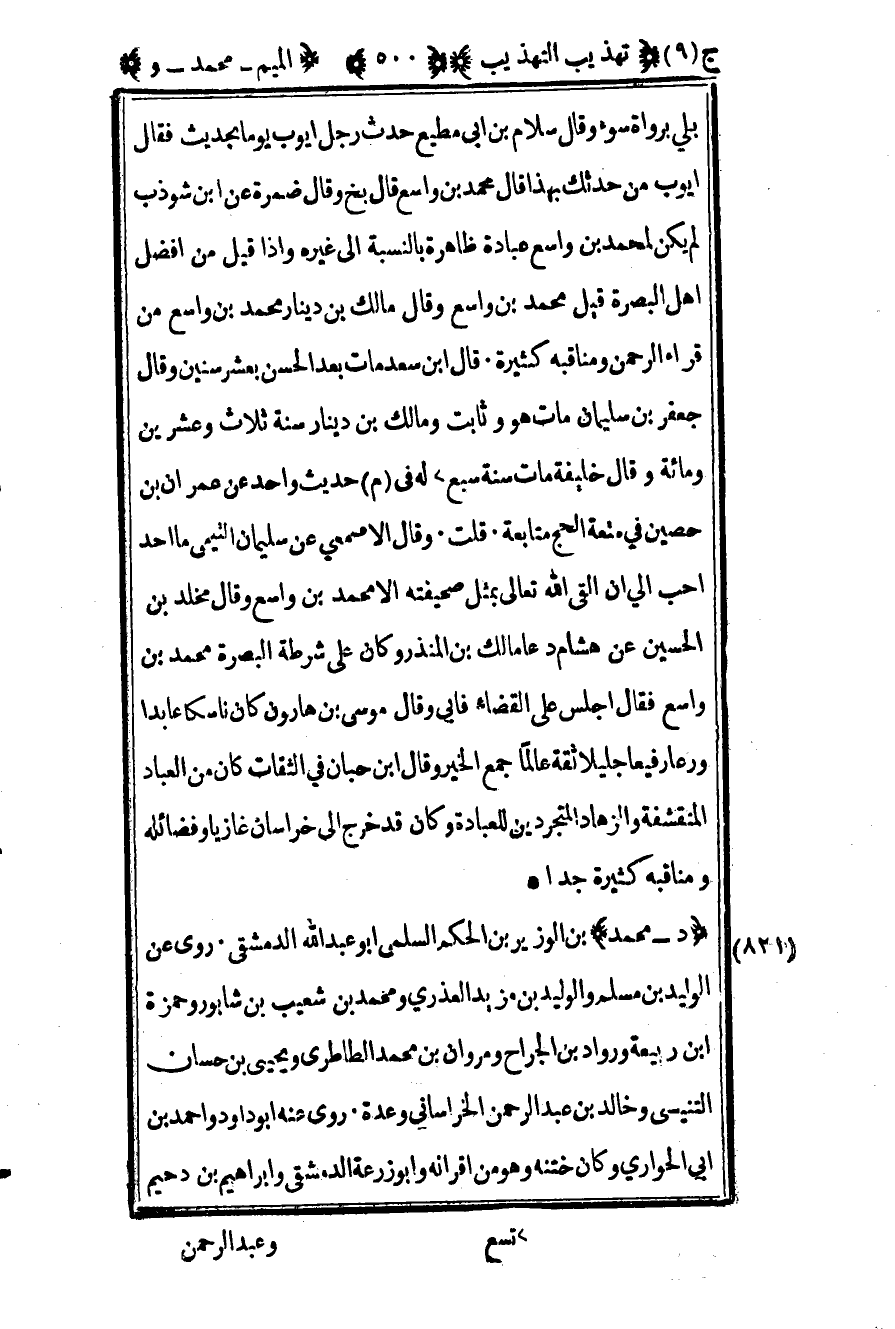 ج (٩) ﴿ تهذيب التهذيب ﴾ ﴿ ٥٠٠ ﴾ ﴿ الميم ـ محمد ـ و ﴾
بلي برواة سوء وقال سلام بن ابى مطيع حدث رجل ايوب يوما بحديث فقال
ايوب من حدثك بهذا قال محمد بن واسع قال بخ وقال ضمرة عن ابن شوذب
لم يكن لمحمد بن واسع عبادة ظاهرة بالنسبة الى غيره واذا قيل من افضل
اهل البصرة قيل محمد بن واسع وقال مالك بن دينار محمد بن واسع من
قراء الرحمن ومناقبه كثيرة ٠ قال ابن سعد مات بعد الحسن بعشر سنين وقال
جعفر بن سليمان مات هو و ثابت ومالك بن دينار سنة ثلاث وعشرين
ومائة و قال خليفة مات سنة سبع > له فى (م) حديث واحد عن عمران بن
حصين في متعة الحج متابعة ٠ قلت ٠ وقال الاصمعي عن سليمان التيمى ما احد
احب الي ان القى الله تعالى بمثل صحيفته الا محمد بن واسع وقال مخلد بن
الحسين عن هشام د عا مالك بن المنذر وكان على شرطة البصرة محمد بن
واسع فقال اجلس على القضاء فابى وقال موسى بن هارون كان ناسكا عابدا
ورعا رفيعا جليلا ثقة عالمًا جمع الخير وقال ابن حبان في الثقات كان من العباد
المنقشفة والزهاد المتجردين للعبادة وكان قد خرج الى خراسان غازيا وفضائله
و مناقبه كثيرة جدا ●
﴿ د ـ محمد ﴾ بن الوزير بن الحكم السلمى ابو عبد الله الدمشقى ٠ روى عن
(٨٢١)
الوليد بن مسلم والوليد بن مزيد العذري ومحمد بن شعيب بن شابور وحمزة
ابن ربيعة ورواد بن الجراح ومروان بن محمد الطاطرى ويحيى بن حسان
التنيسى وخالد بن عبد الرحمن الخراسانى وعدة ٠ روى عنه ابو داود واحمد بن
ابي الحواري وكان ختنه وهو من اقرانه وابو زرعة الدمشقى وابراهيم بن دحيم
> تسع
وعبد الرحمن